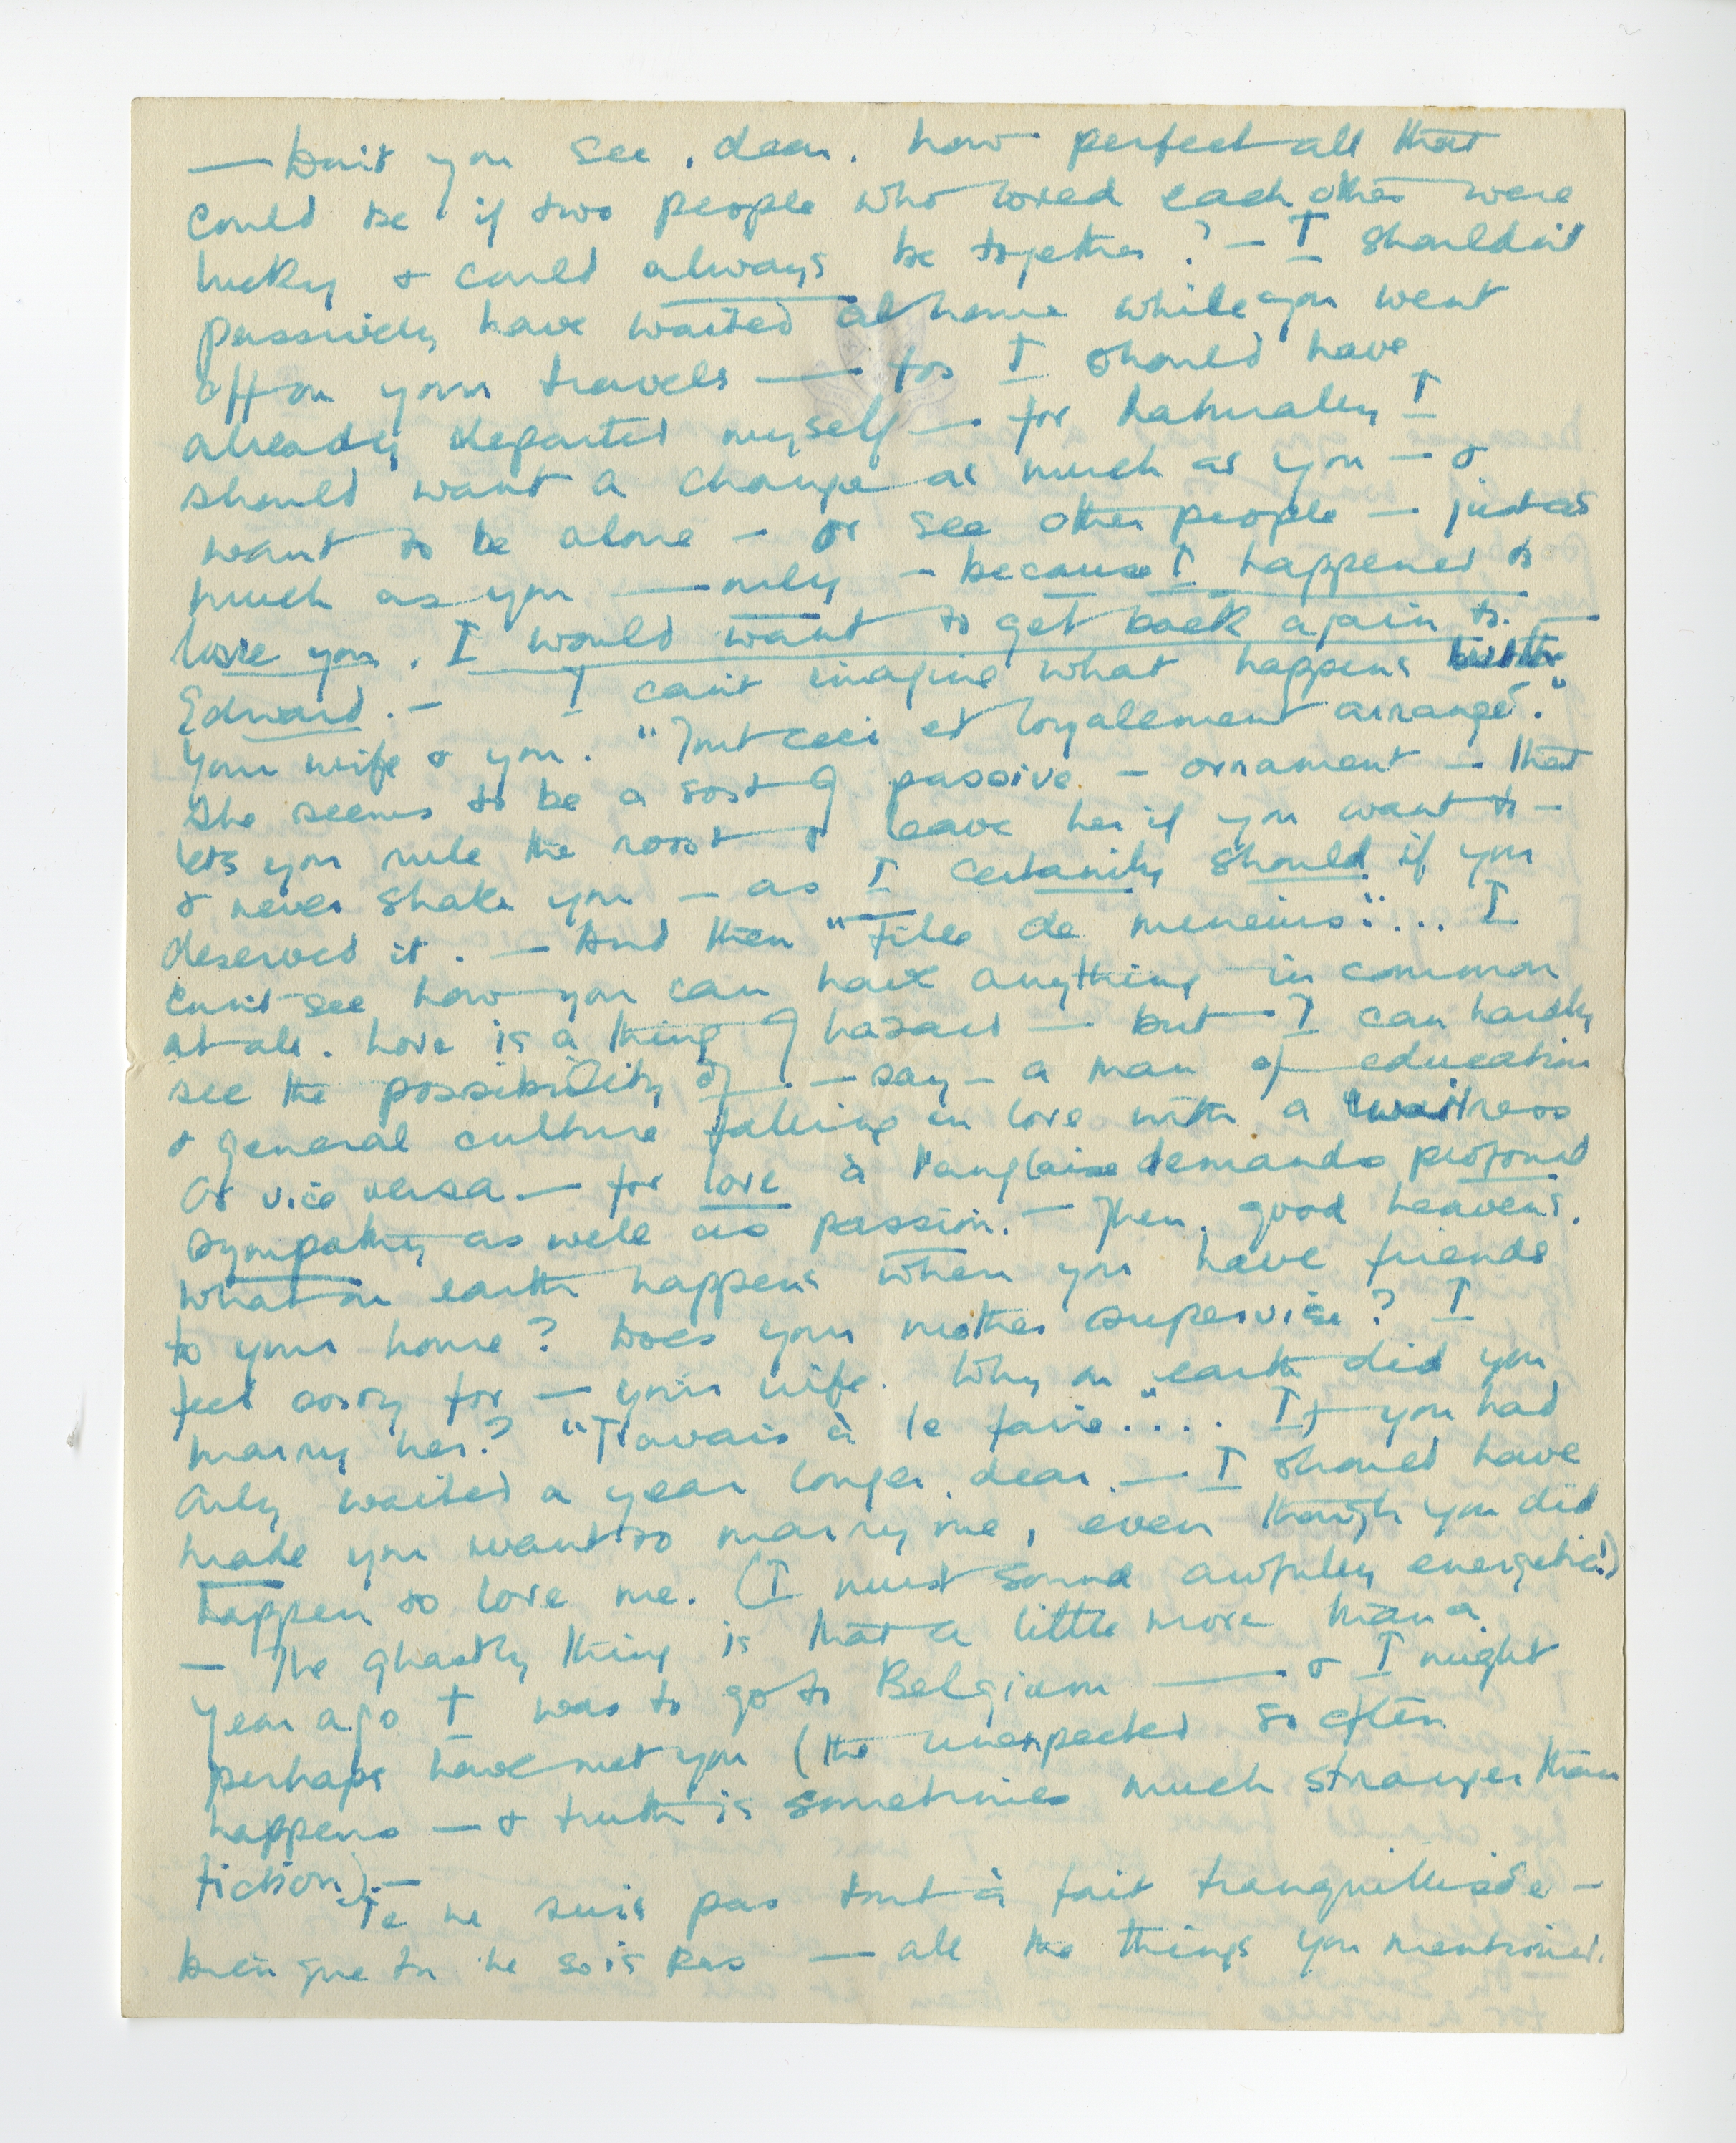 — Don't you see, dear, how perfect all that
could be if two people who loved each other were
lucky & could always be together? — I shouldn't
passively have waited at home while you went
off on your travels — for I should have
already departed myself — for naturally I
should want a change as much as you — &
want to be alone — or see other people — just as
much as you — only — because I happened to
love you, I would want to get back again to —
Edward. — I can't imagine what happens
your wife & you. "Tout ceci et loyalement arrangé."
She seems to be a sort of passive — ornament — that
lets you rule the roost & leave her if you want to —
& never shake you — as I certainly should if you
deserved it. — And then "Fille de meneurs"... I
can't see how you can have anything in common
at all. Love is a thing of hazard — but I can hardly
see the possibility of — say — a man of education
& general culture falling in love with a waitress
or vice versa — for love à l'anglaise demands profound
sympathy as well as passion. — Then, good heavens,
what on earth happens when you have friends
to your home? Does your mother supervise? I
feel sorry for — your wife. Why on earth did you
marry her? "J'avais à le faire".... If you had
only waited a year longer, dear, — I should have
made you want to marry me, even though you did
happen to love me. (I must sound awfully energetic!)
— The ghastly thing is that a little more than a
year ago I was to go to Belgium — & I might
perhaps have met you (the unexpected so often
happens — & truth is sometimes much stranger than
fiction). —
Je ne suis pas tout à fait tranquillisée —
bien que tu ne sois pas — all the things you mentioned.